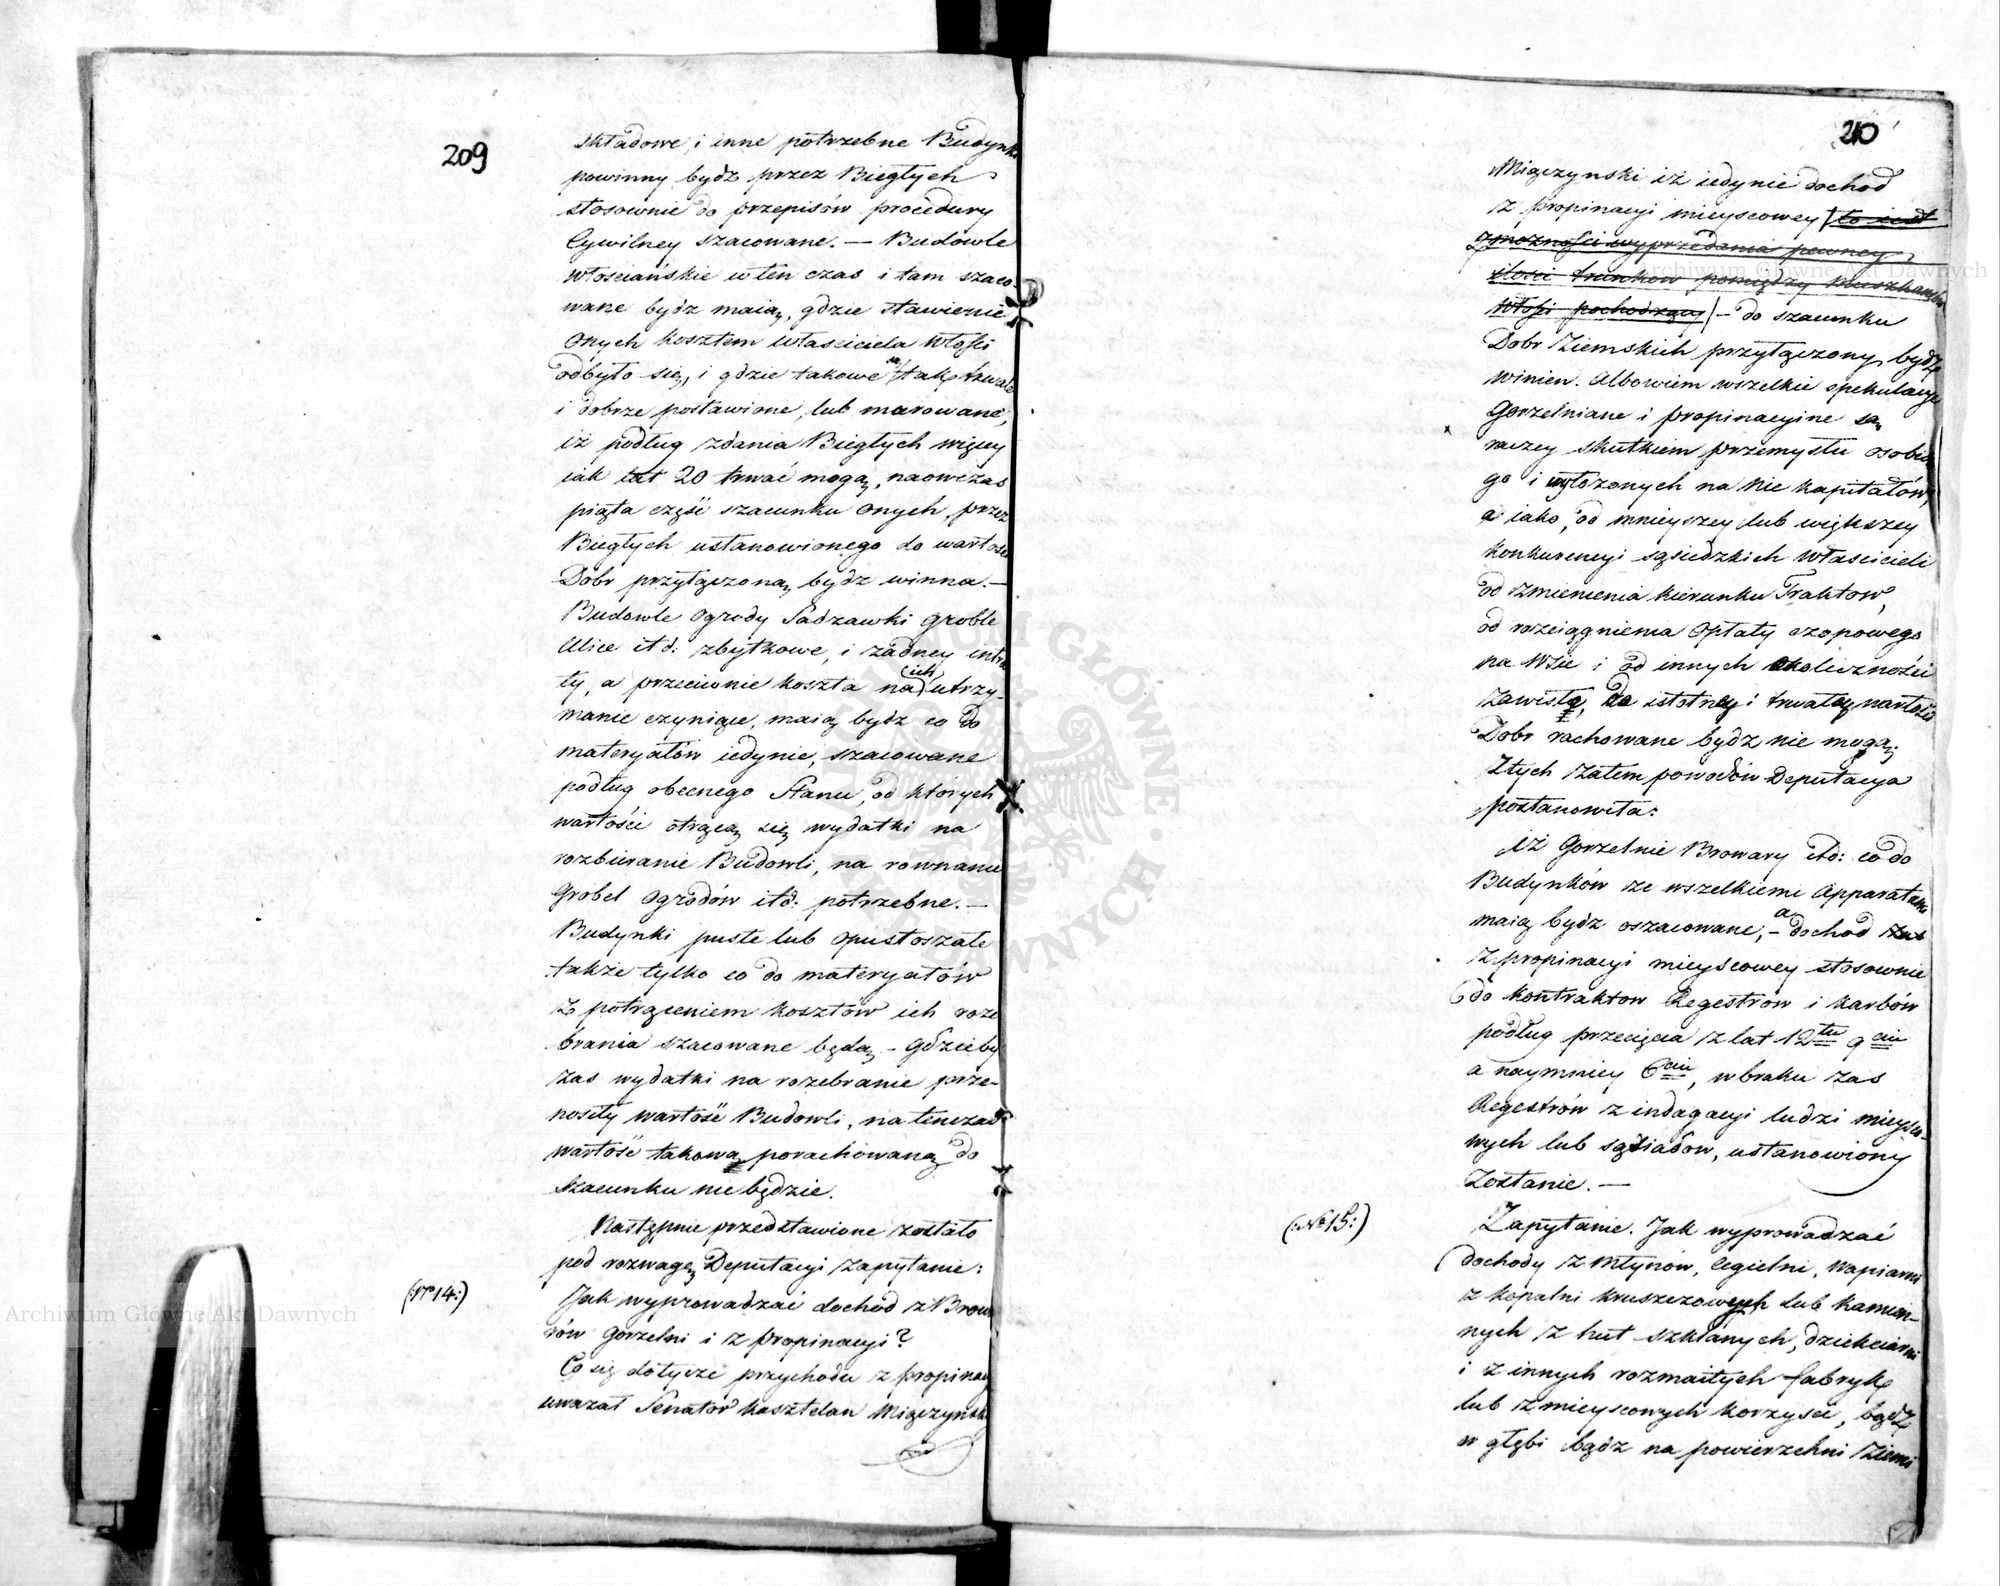 209
składowe, i inne potrzebne Budynki
powinny bydz przez Biegłych
stosownie do przepisów procedury
Cywilney szacowane. — Budowle
włościańskie w ten czas i tam szaco-
wane bydz maią, gdzie stawienie
onych kosztem właściciela włości
odbyło się, i gdzie takowe są tak trwałe
i dobrze postawione, lub murowane,
iż podług zdania Biegłych więcey
iak lat 20 trwać mogą, naowczas
piąta część szacunku onych, przez
Biegłych ustanowionego do wartości
Dobr przyłączoną bydz winna. —
Budowle ogrody Sadzawki groble
Ulice itd: zbytkowe, i żadney intra
ty, a przeciwnie koszta na ich utrzy-
manie czyniące, maią bydz co do
materyałów iedynie, szacowane
podług obecnego Stanu, od których
wartości otrącą się wydatki na
rozbieranie Budowli, na rownanie
Grobel Ogrodów itd: potrzebne. —
Budynki puste lub opustoszałe
także tylko co do materyałów
z potrąceniem kosztów ich roze
brania szacowane będą. — Gdzieby
zas wydatki na rozebranie prze-
nosiły wartość Budowli, na tenczas
wartość takowa porachowaną do
szacunku nie będzie.
Następnie przedstawione zostało
pod rozwagę Deputacyi zapytanie:
(:No 14:)
Jak wyprowadzać dochód z Browa
rów gorzelni i z propinacyi?
Co się dotycze przychodu z propinacyi
uważał Senator Kasztelan Miączynski
210
Miączynski iż iedynie dochod
z propinacyi mieyscowey to iest
z możności wyprzedania pewney
ilości trunkow pomiędzy
włości pochodzący — do szacunku
Dobr Ziemskich przyłączony bydz
winien. Albowiem wszelkie spekulacye
gorzelniane i propinacyine są
raczey skutkiem przemysłu osobiste
go i wyłożonych na nie kapitałów,
a iako, od mnieyszey lub większey
konkurencyi sąsiedzkich właścicieli
od zmienienia kierunku Traktow,
od rozciągnienia Opłaty czopowego
na wsie i od innych okoliczności
zawisłe, do istotney i trwałey wartości
Dobr rachowane bydz nie mogą.
Z tych zatem powodów Deputacya
postanowiła:
Iż Gorzelnie Browary itd: co do
Budynków ze wszelkiemi Apparatami
maią bydz oszacowane, — a dochod
z propinacyi mieyscowey stosownie
do kontraktow Regestrów i karbów
podług przecięcia z lat 12tu 9ciu
a naymniey 6ciu, w braku zas
Regestrów z indagacyi ludzi mieysco-
wych lub sąsiadow, ustanowiony
Zostanie. —
(:No 15:)
Zapytanie. Jak wyprowadzać
dochody z Młynów, Cegielni, wapiarni
z kopalni kruszczowych lub kamien-
nych z hut szklanych, dziekciarni
i z innych rozmaitych fabryk
lub z mieyscowych korzyści, bądz
w głębi bądz na powierzchni Ziemi
Archiwum Główne Akt Dawnych
Archiwum Główne Akt Dawnych